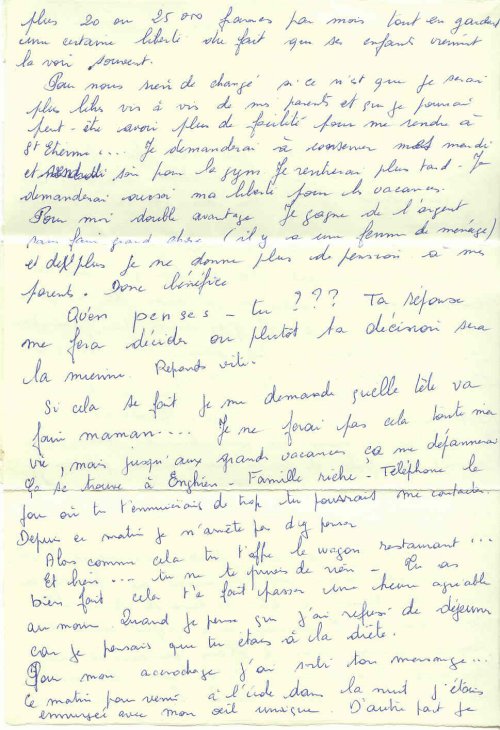 plus 20 ou 25 000 francs par mois tout en gardant
une certaine liberté du fait que ses enfants viennent
la voir souvent.
Pour nous rien de changé si ce n'est que je serai
plus libre vis à vis de mes parents et que je pourrai
peut-être avoir plus de facilité pour me rendre à
St Etienne... Je demanderai à conserver mes mardi
et soir pour la gym. Je rentrerai plus tard - Je
demanderai aussi ma liberté pour les vacances.
Pour moi double avantage Je gagne de l'argent
sans faire grand chose (il y a une femme de ménage)
et de plus je ne donne plus de pension à mes
parents. Donc bénéfice
Qu'en penses-tu ??? Ta réponse
me fera décider ou plutôt ta décision sera
la mienne. Reponds vite.
Si cela se fait je me demande quelle tête va
faire maman.... Je ne ferai pas cela toute ma
vie, mais jusqu'aux grandes vacances ça me dépannerai
Ça se trouve à Enghien - Famille riche - Téléphone le
jour où tu t'ennuierais de trop tu pourrais me contacter...
Depuis ce matin je n'arrête pas d'y penser
Alors comme cela tu t'offre le wagon restaurant...
Et bien... tu ne te prives de rien - Tu as
bien fait cela t'a fait passer une heure agréable
au moins. Quand je pense que j'ai refusé de déjeuner
car je pensais que tu étais à la diète.
Pour mon accrochage j'ai suivi ton message...
Ce matin pour venir à l'école dans la nuit j'étais
avec mon œil unique. D'autre part je